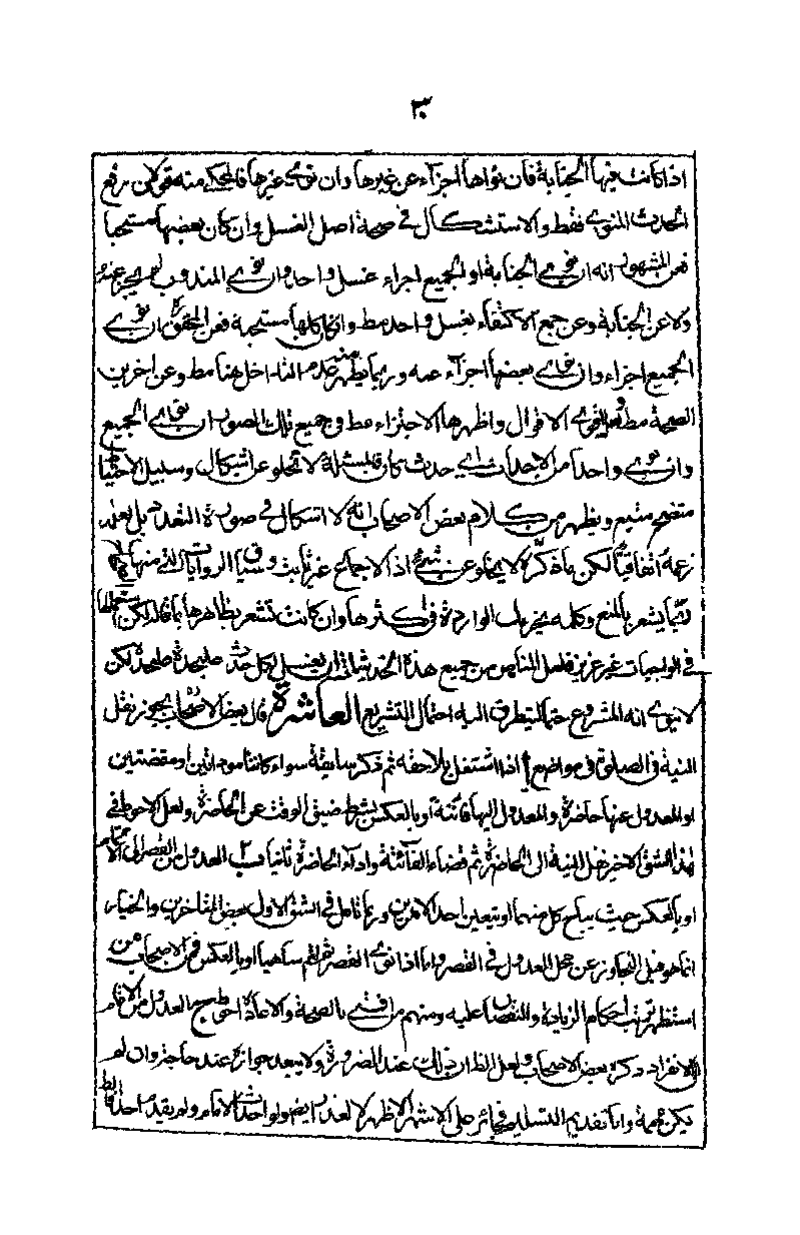 ٣٠
اذا كانت فيها الجنابة فان نواها اجزاء عن غيرها وان نوى غيرها فالمحكى منه قولان رفع
الحدث المنوى فقط والاستشكال فى صحة اصل الغسل وان كان بعضها مستحبا
فمن المشهور انه ان نوى الجنابة او الجميع اجزاء غسل واحد وان نوى المندوب لم يجز عنه
ولا عن الجنابة وعن جمع الاكتفاء بغسل واحد مط وان كان كلها مستحبة فعن المحقق ره ان نوى
الجميع اجزاء وان نوى بعضها اجزاء عنه وربما يظهر منه عدم التداخل هنا مط وعن اخرين
الصحة مط الاقوال واظهرها الاجتزاء مط وجميع تلك الصور ان نوى الجميع
وان نوى واحدا من الاحداث اى حدث كان فالمسئلة لا تخلو عن اشكال وسبيل الاحتياط
متضح متبع ويظهر من كلام بعض الاصحاب انه لا اشكال فى صورة التعدد بل
زعمه اتفاقيا لكن ما ذكره لا يخلو عن شىء اذ الاجماع غير ثابت وسياق الروايات التى منها
ربما يشعر بالمنع وكلمة يجزيك الواردة فى اكثرها وان كانت تشعر بظاهرها بما قاله لكن
فى الواجبات غير عزيز فلعل المناص من جميع هذه الخدشيات ان يغتسل لكل حدث عليحدة عليحدة لكن
لا ينوى انه المشروع حتما لتطرق اليه احتمال التشريع العاشرة قال بعض الاصحاب يجوز نقل
النية فى الصلوة فى مواضع ا اذا اشتغل بلاحقة ثم ذكر سابقة سواء كانتا مؤداتين او مقضيتين
او المعدول عنها حاضرة والمعدول اليها فائتة او بالعكس بشرط ضيق الوقت عن الحاضرة ولعل الاحوط فى
هذا الشق الاخير نقل النية الى الحاضرة ثم قضاء الفائتة واداء الحاضرة ثانيا وسبب العدول من القصر الى الاتمام
او بالعكس حيث يباح كل منهما او يتعين احد الامرين وربما تامل فى الشق الاول بعض المتاخرين والخيار
انما هو قبل التجاوز عن محل العدول فى القصر واما اذا نوى القصر فاتم ساهيا او بالعكس فمن الاصحاب من
استظهر ترتب احكام الزيادة والنقصان عليه ومنهم من افتى بالصحة والاعادة احوط ج العدول من الائتمام
الى الانفراد ذكره بعض الاصحاب ولعل الظ ان ذلك عند الضرورة ولا يبعد جوازه عند حاجة وان لم
يكن مهمة واما تقديم التسليم فجائز على الاشهر الاظهر لا لعذر ايضا ولو احدث الامام ولم يقدم احدا